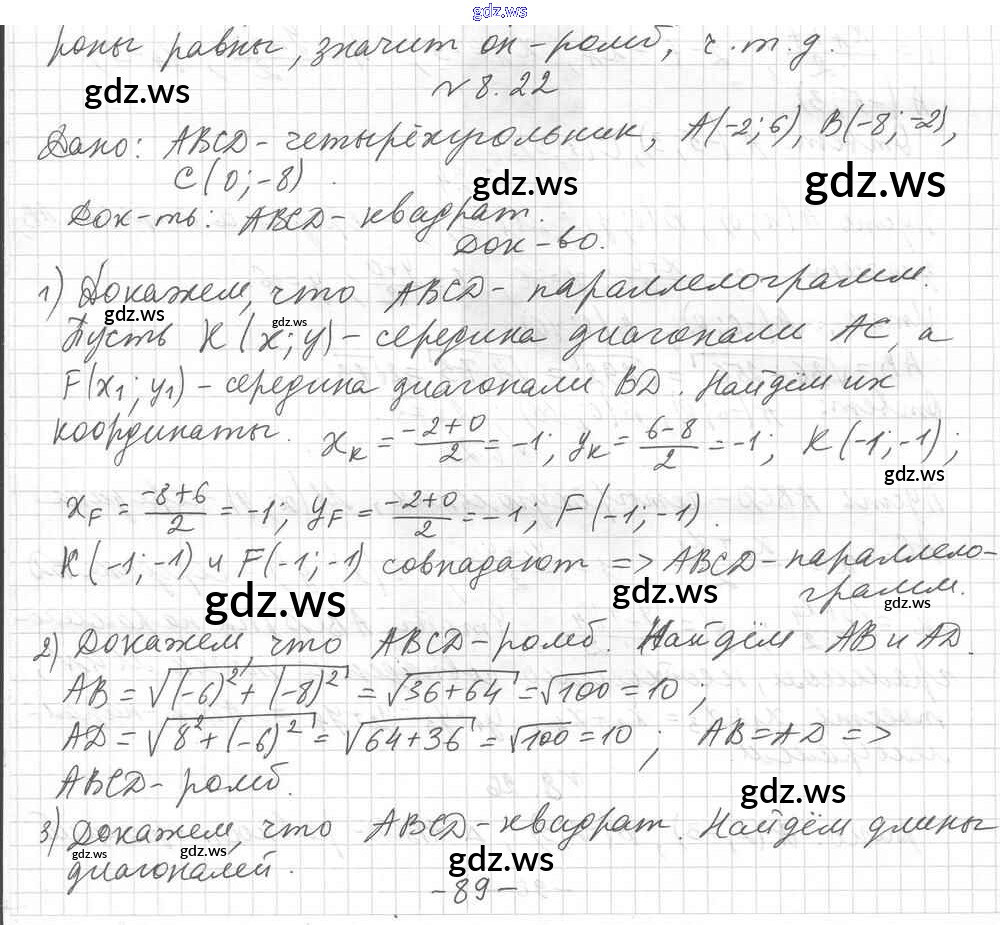 gdz.ws
роны равны, значит он - ромб, ч.т.д.
gdz.ws
№ 8.22
Дано: ABCD - четырёхугольник, A(-2; 6), B(-8; -2),
C(0; -8).
gdz.ws
gdz.ws
Док-ть: ABCD - квадрат.
Док-во.
1) Докажем, что ABCD - параллелограмм.
gdz.ws
gdz.ws
Пусть K(x; y) - середина диагонали AC, а
F(x₁; y₁) - середина диагонали BD. Найдём их
координаты. x_K = (-2+0)/2 = -1; y_K = (6-8)/2 = -1; K(-1; -1);
gdz.ws
x_F = (-8+6)/2 = -1; y_F = (-2+0)/2 = -1; F(-1; -1).
K(-1; -1) и F(-1; -1) совпадают => ABCD - параллело-
грамм.
gdz.ws
gdz.ws
gdz.ws
2) Докажем, что ABCD - ромб. Найдём AB и AD.
AB = √((-6)² + (-8)²) = √(36+64) = √100 = 10;
AD = √(8² + (-6)²) = √(64+36) = √100 = 10; AB = AD =>
ABCD - ромб.
gdz.ws
3) Докажем, что ABCD - квадрат. Найдём длины
gdz.ws
gdz.ws
gdz.ws
диагоналей.
- 89 -